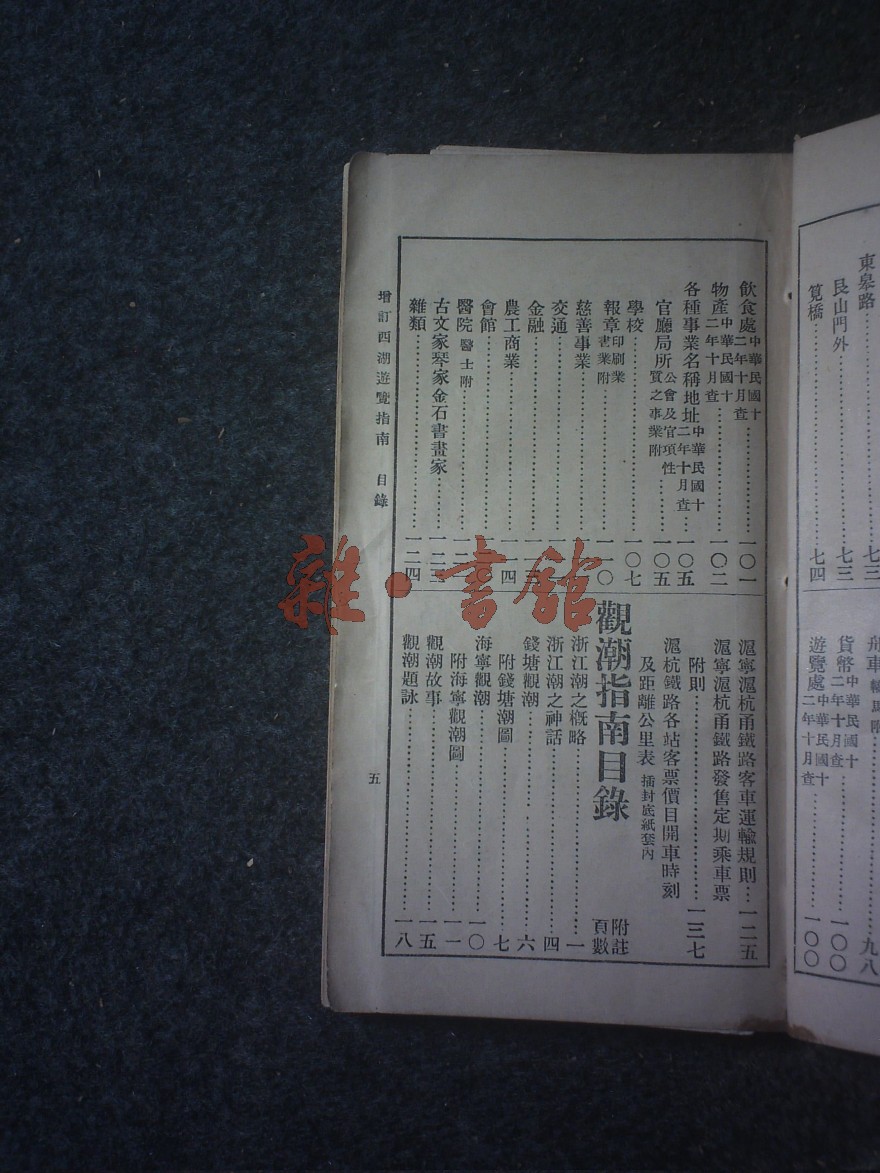 東皋路……七三
艮山門外……七三
筧橋……七四
舟車
貨幣中華民國十二年十月查……一〇〇
遊覽處中華民國十二年十月查……一〇〇
飲食處中華民國十二年十月查……一〇一
物產中華民國十二年十月查……一〇二
各種事業名稱地址中華民國十二年十月查……一〇五
官廳局所公會及官項性質之事業附……一〇五
學校……一〇七
報章印刷業書業附……一一〇
慈善事業
交通
金融
農工商業
會館
醫院醫士附
古文家琴家金石書畫家……一二三
雜類……一二四
滬寧滬杭甬鐵路客車運輸規則……一二五
滬寧滬杭甬鐵路發售定期乘車票
附則……一三七
滬杭鐵路各站客票價目開車時刻
及距離公里表 插封底紙套內
觀潮指南目錄 附註頁數
浙江潮之概略……一
浙江潮之神話……四
錢塘觀潮……六
附錢塘潮圖……七
海寧觀潮……一〇
附海寧觀潮圖……一一
觀潮故事……一五
觀潮題詠……一八
增訂西湖遊覽指南 目錄
五
雜·書館